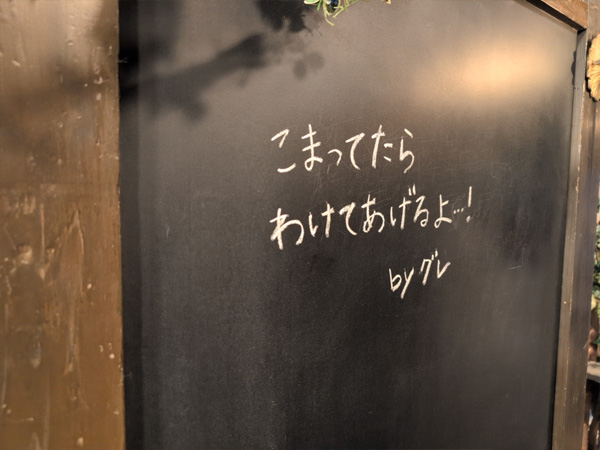 こまってたら
わけてあげるよ…!
byグレ